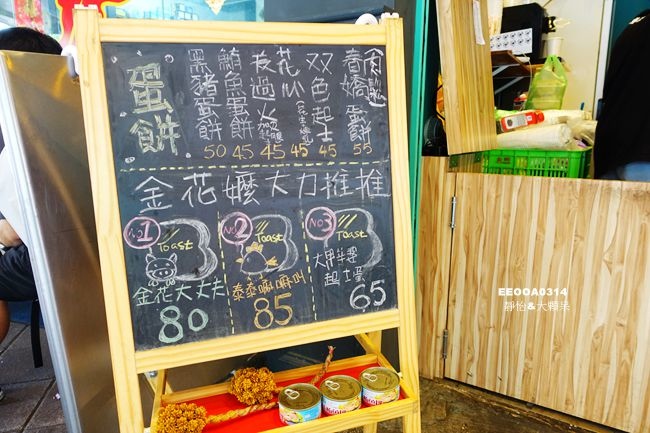 蛋餅
黑豬蛋餅 50
鮪魚蛋餅 45
夜過火 45
花心 45
双色起士 45
春嬌蛋餅 55
金花嬤大力推推
NO.1 Toast
金花大丈夫
80
NO.2 Toast
泰泰嘛嘛叫
85
NO.3 Toast
大甲芋婆
起士蛋
65
EEOOA0314
靜怡&大顆呆